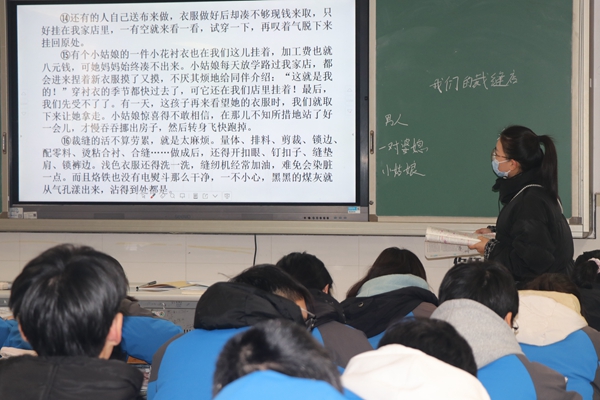 ⑭还有的人自己送布来做，衣服做好后却凑不够现钱来取，只
好挂在我家店里，一有空就来看一看，试穿一下，再叹着气脱下来
挂回原处。
⑮有个小姑娘的一件小花衬衣也在我们这儿挂着，加工费也就
八元钱，可她妈妈始终凑不出来。小姑娘每天放学路过我家店，都
会进来捏着新衣服摸了又摸，不厌其烦地给同伴介绍：“这就是我
的！”穿衬衣的季节都快过去了，可它还在我们店里挂着！最后，
我们先受不了了。有一天，这孩子再来看她的衣服时，我们就取
下来让她拿走。小姑娘惊喜得不敢相信，在那儿不知所措地站了好
一会儿，才慢吞吞挪出房子，然后转身飞快跑掉。
⑯裁缝的活不算劳累，就是太麻烦。量体、排料、剪裁、锁边、
配零料、烫粘合衬、合缝……做成后，还得开扣眼、钉扣子、缝垫
肩、锁裤边。浅色衣服还得洗一洗，缝纫机经常加油，难免会染脏
一点。而且烙铁也没有电熨斗那么干净，一不小心，黑黑的煤灰就
从气孔漾出来，沾得到处都是。
我们的裁缝店
男人
一对婆媳
小姑娘